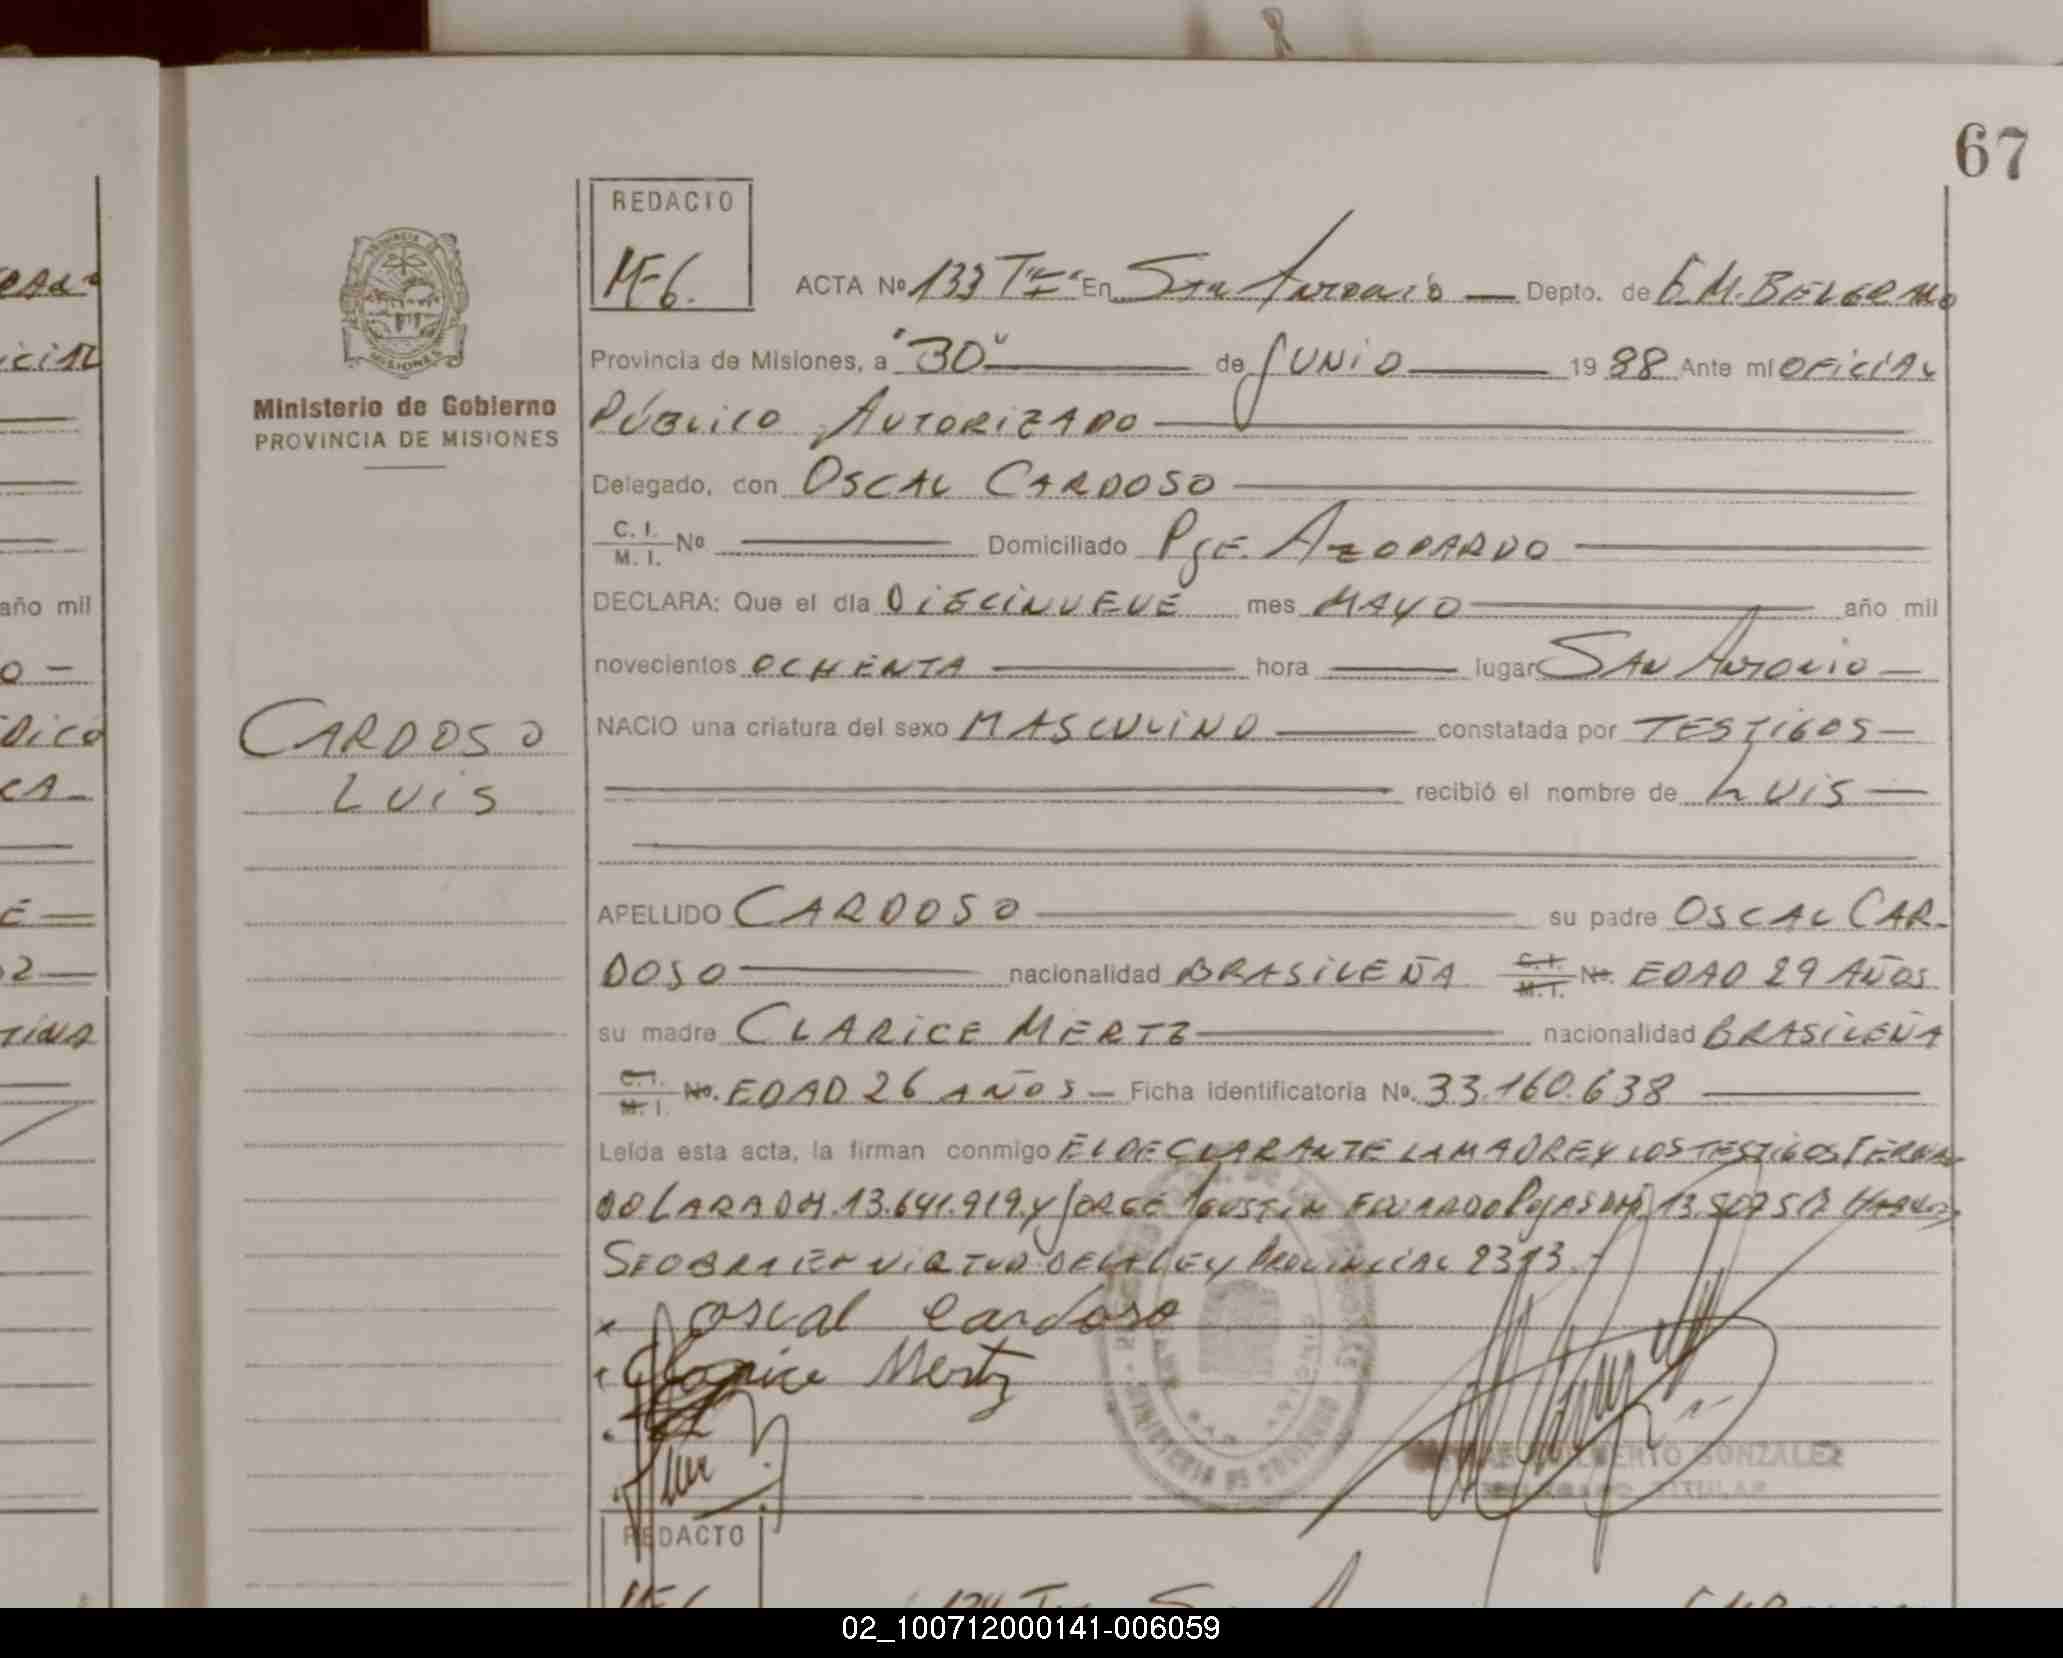 67
REDACTO
MF6.
ACTA Nº 133 En San Antonio Depto. de G.M. BELGRANO
Provincia de Misiones, a "30" de JUNIO 1988 Ante mi OFICIAL
PÚBLICO AUTORIZADO
Delegado, con OSCAL CARDOSO
C. I.
M. I. Nº Domiciliado Pje. AZOPARDO
DECLARA: Que el día DIECINUEVE mes MAYO año mil
novecientos OCHENTA hora lugar SAN ANTONIO
NACIO una criatura del sexo MASCULINO constatada por TESTIGOS
recibió el nombre de LUIS
APELLIDO CARDOSO su padre OSCAL CAR-
DOSO nacionalidad BRASILEÑA C. I. M. I. Nº. EDAD 29 AÑOS
su madre CLARICE MERTZ nacionalidad BRASILEÑA
C. I. M. I. Nº. EDAD 26 AÑOS Ficha identificatoria Nº. 33.160.638
Leída esta acta, la firman conmigo EL DECLARANTE LA MADRE Y LOS TESTIGOS FERNAN
DO LARA 13.641.919 Y JORGE AGUSTIN EDUARDO
SE OBRA EN VIRTUD DE LA LEY PROVINCIAL
oscal cardoso
Clarice Mertz
GONZALEZ
TITULAR
MINISTERIO DE GOBIERNO
REDACTO
PROVINCIA DE
MISIONES
Ministerio de Gobierno
PROVINCIA DE MISIONES
CARDOSO
LUIS
año mil
02_100712000141-006059